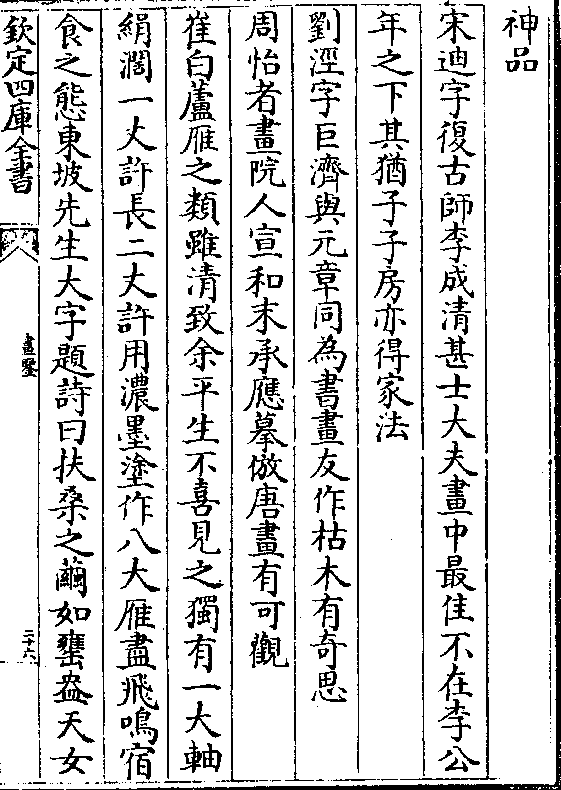 神品
宋迪字復古師李成清甚士大夫畫中最佳不在李公
年之下其猶子子房亦得家法
劉涇字巨濟與元章同為書畫友作枯木有竒思
周怡者畫院人宣和末承應摹倣唐畫有可觀
崔白蘆雁之類雖清致余平生不喜見之獨有一大軸
絹濶一丈許長二丈許用濃墨塗作八大雁盡飛鳴宿
食之態東坡先生大字題詩曰扶桑之繭如甕盎天女
欽定四庫全書
畫鑒
二十六